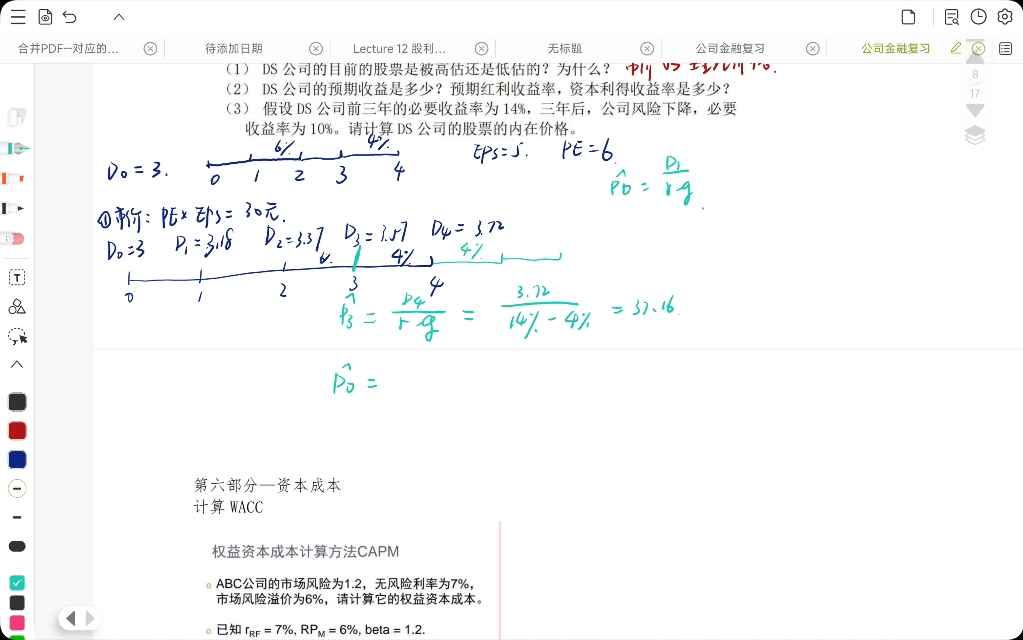 合并PDF--对应的... 待添加日期 Lecture 12 股利... 无标题 公司金融复习 公司金融复习
8
17
（1） DS 公司的目前的股票是被高估还是低估的？为什么？
（2） DS 公司的预期收益是多少？预期红利收益率，资本利得收益率是多少？
（3） 假设 DS 公司前三年的必要收益率为 14%，三年后，公司风险下降，必要
收益率为 10%。请计算 DS 公司的股票的内在价格。
6% 4% EPS=5. PE=6.
D₀ = 3. 0 1 2 3 4
P̂₀ = D₁ / r-g
①市价: PE× EPS= 30元.
D₀=3 D₁=3.18 D₂=3.37 D₃=3.57 D₄=3.72
4% 4%
0 1 2 3 4
P̂₃ = D₄ / r-g = 3.72 / 14%-4% = 37.16
P̂₀ =
第六部分—资本成本
计算 WACC
权益资本成本计算方法CAPM
ABC公司的市场风险为1.2，无风险利率为7%，
市场风险溢价为6%，请计算它的权益资本成本。
已知 rRF = 7%, RPM = 6%, beta = 1.2.